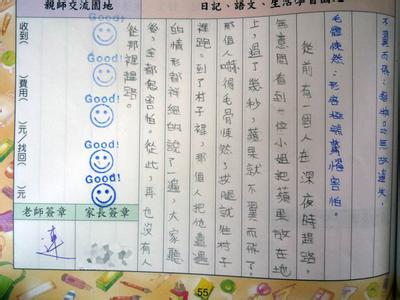 親師交流園地
日記、語文、生活學習園地
不翼而飛:無故遺失。
毛骨悚然:形容極端驚惶害怕。
從前有一個人在深夜時趕路,
無意間看到一位小姐把蘋果放在地
上,過了幾秒,蘋果就不翼而飛了。
那個人嚇得毛骨悚然,拔腿就往村子
裡跑。到了村子裡,那個人把他遭遇
的情形都詳細的說了一遍,大家聽
後,全都很害怕。從此,再也沒有人
從那裡趕路。
Good!
Good!
Good!
Good!
Good!
收到( )費用( )元/找回( )元
老師簽章
家長簽章
連
55